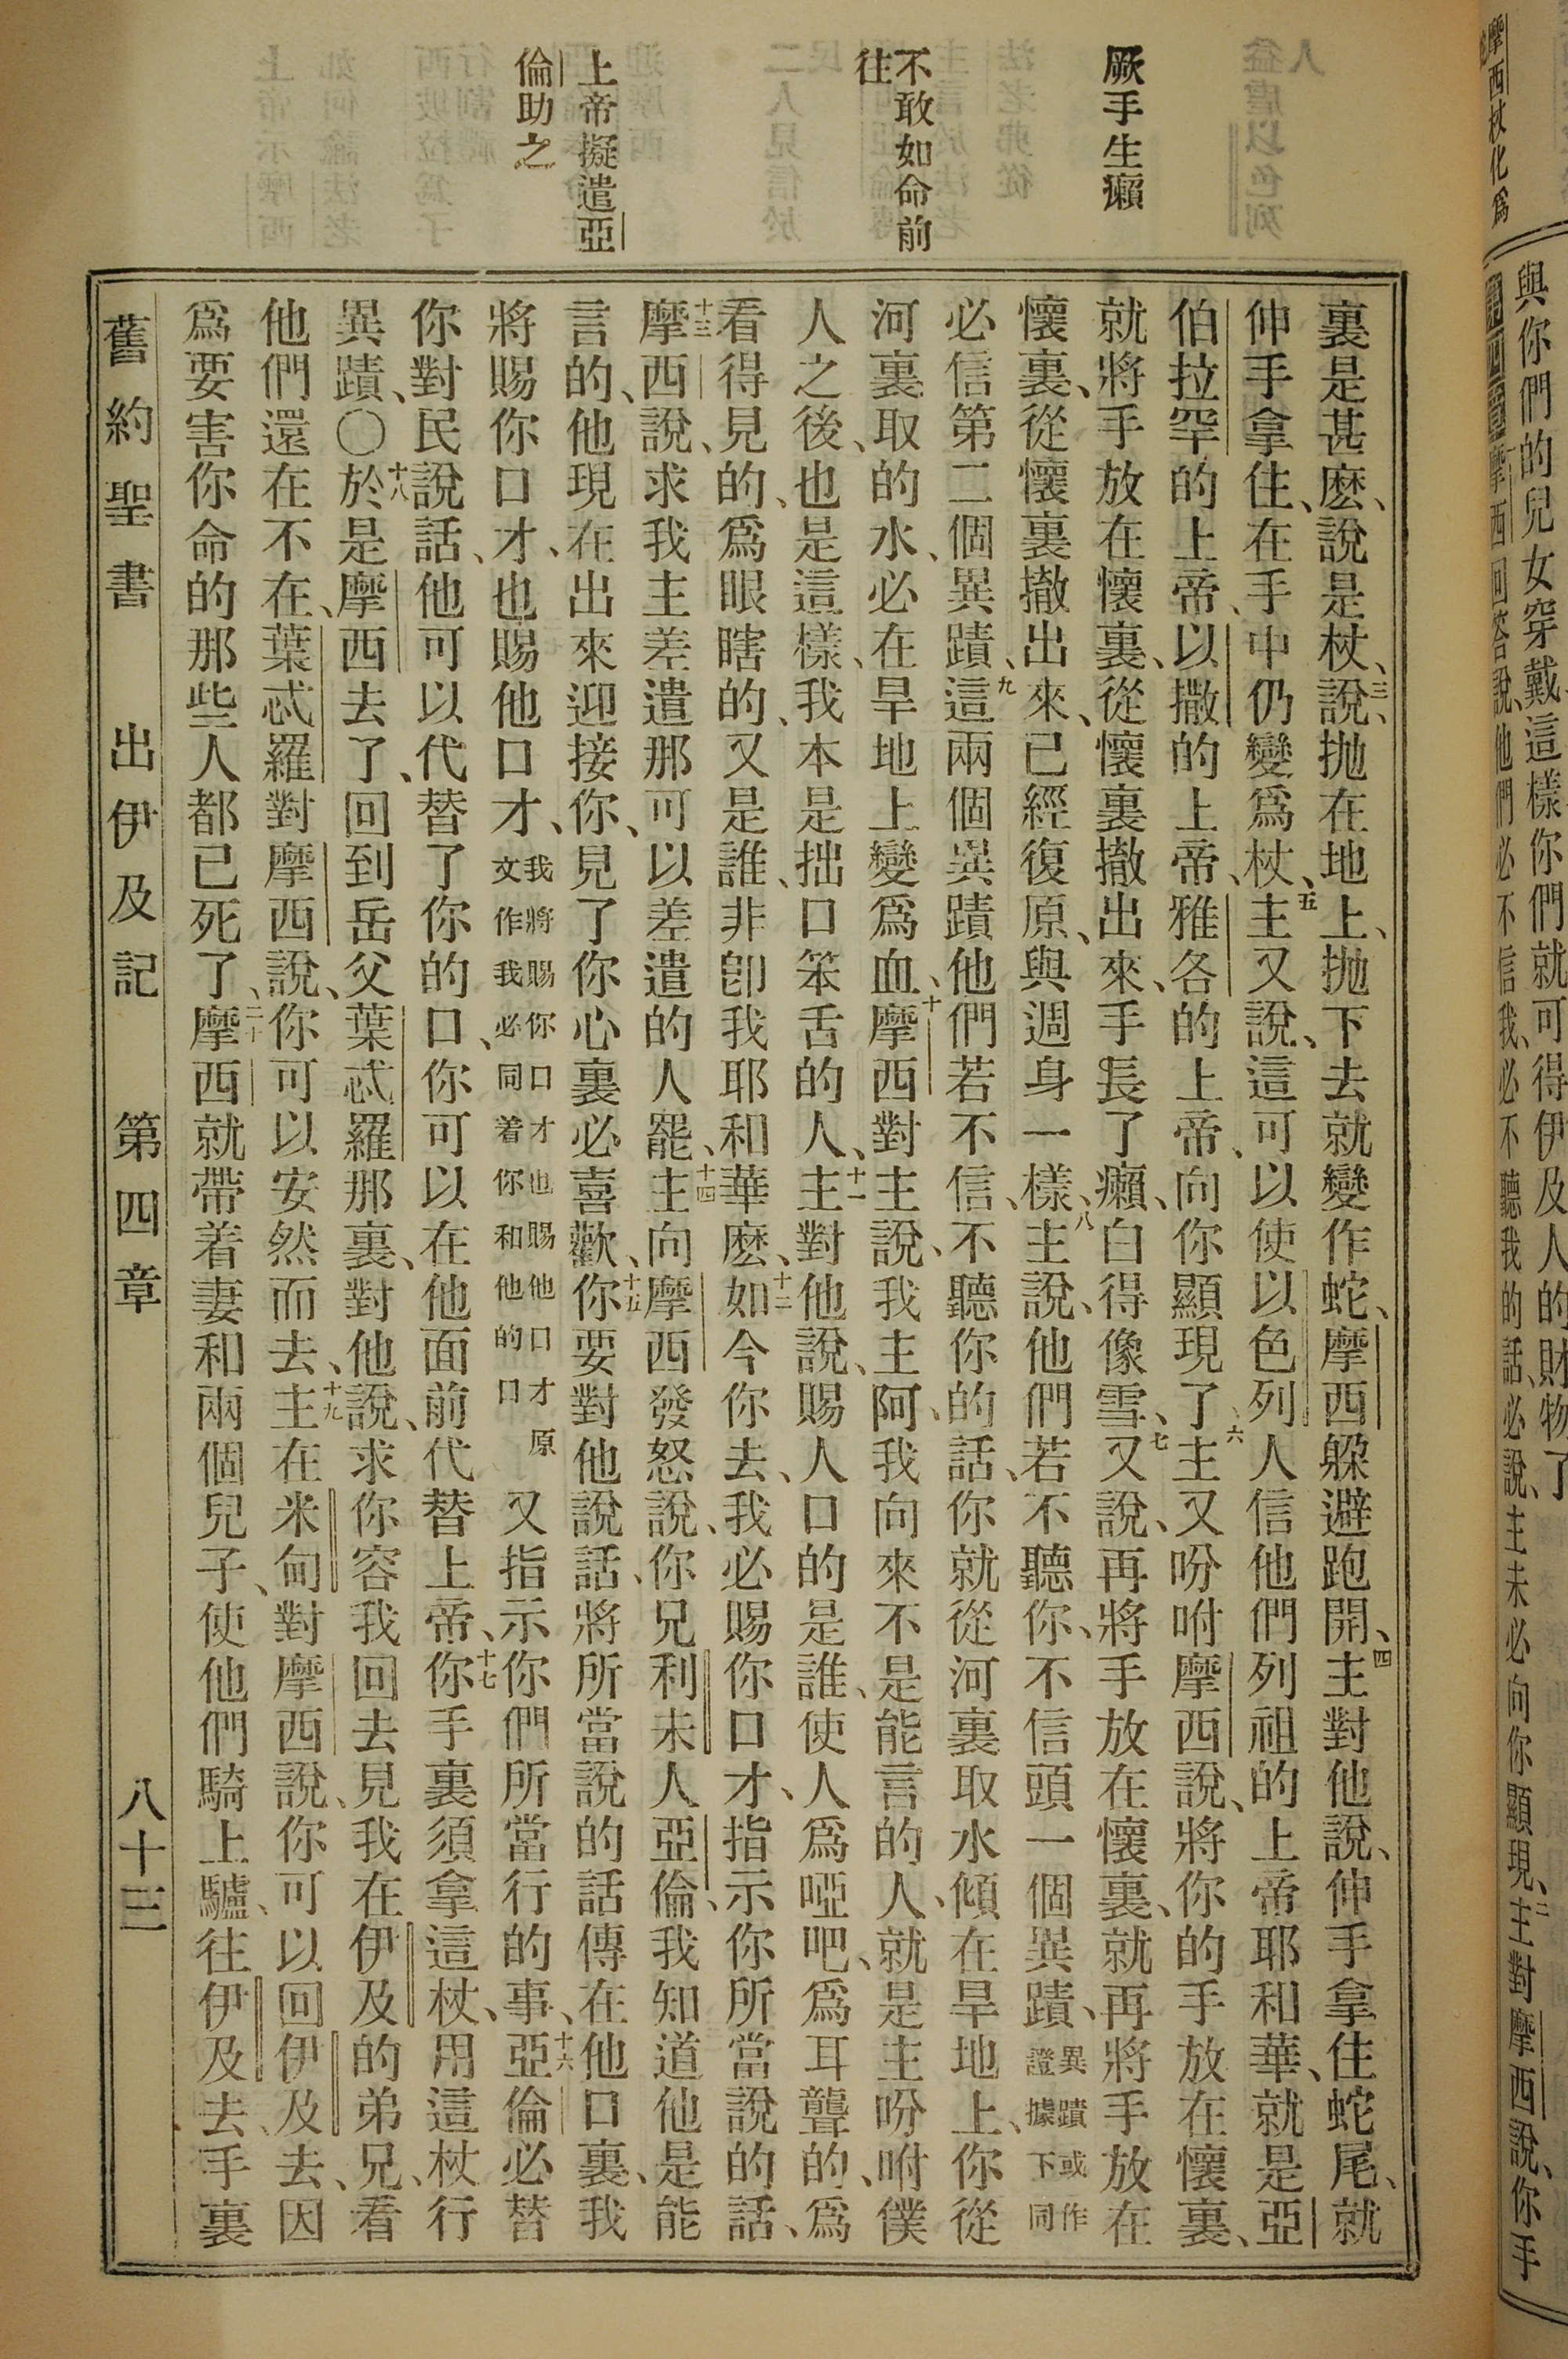 厥手生癩
不敢如命前
往
上帝擬遣亞
倫助之
裏是甚麽、說是杖、三說、抛在地上、抛下去就變作蛇、摩西躱避跑開、四主對他說、伸手拿住蛇尾、就
伸手拿住、在手中仍變爲杖、五主又說、這可以使以色列人信他們列祖的上帝耶和華、就是亞
伯拉罕的上帝、以撒的上帝、雅各的上帝、向你顯現了、六主又吩咐摩西說、將你的手放在懷裏、
就將手放在懷裏、從懷裏撤出來、手長了癩、白得像雪、七又說、再將手放在懷裏、就再將手放在
懷裏、從懷裏撤出來、已經復原、與週身一樣、八主說、他們若不聽你、不信頭一個異蹟、異蹟或作證據下同
必信第二個異蹟、九這兩個異蹟他們若不信、不聽你的話、你就從河裏取水傾在旱地上、你從
河裏取的水、必在旱地上變爲血、十摩西對主說、我主阿、我向來不是能言的人、就是主吩咐僕
人之後、也是這樣、我本是拙口笨舌的人、十一主對他說、賜人口的是誰、使人爲啞吧、爲耳聾的、爲
看得見的、爲眼瞎的、又是誰、非卽我耶和華麽、十二如今你去、我必賜你口才、指示你所當說的話、
十三摩西說、求我主差遣那可以差遣的人罷、十四主向摩西發怒說、你兄利未人亞倫、我知道他是能
言的、他現在出來迎接你、見了你心裏必喜歡、十五你要對他說話、將所當說的話傳在他口裏、我
將賜你口才、也賜他口才、我將賜你口才也賜他口才原文作我必同着你和他的口又指示你們所當行的事、十六亞倫必替
你對民說話、他可以代替了你的口、你可以在他面前代替上帝、十七你手裏須拿這杖、用這杖行
異蹟、〇十八於是摩西去了、回到岳父葉忒羅那裏、對他說、求你容我回去見我在伊及的弟兄、看
他們還在不在、葉忒羅對摩西說、你可以安然而去、十九主在米甸對摩西說、你可以回伊及去、因
爲要害你命的那些人都已死了、二十摩西就帶着妻和兩個兒子、使他們騎上驢、往伊及去、手裏
舊約聖書 出伊及記 第四章 八十三
摩西杖化爲
與你們的兒女穿戴這樣你們就可得伊及人的財物了
摩西回答說、他們必不信我、必不聽我的話、必說、主未必向你顯現、二主對摩西說、你手